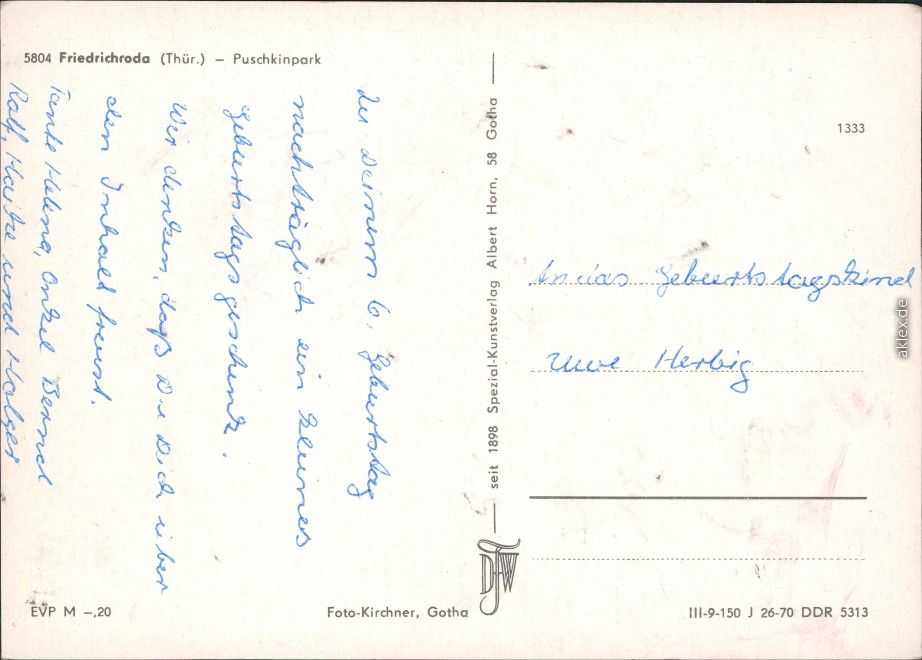 5804 Friedrichroda (Thür.) – Puschkinpark
Zu Deinem 6. Geburtstag
nachträglich ein kleines
Geburtstagsgeschenk.
Wir denken, daß Du Dich über
den Inhalt freust.
Tante Helena, Onkel Bernd
Ralf, Heike und Holger
EVP M –,20
Foto-Kirchner, Gotha
seit 1898 Spezial-Kunstverlag Albert Horn, 58 Gotha
DFW
1333
An das Geburtstagskind
Uwe Herbig
III-9-150 J 26-70 DDR 5313
aklex.de